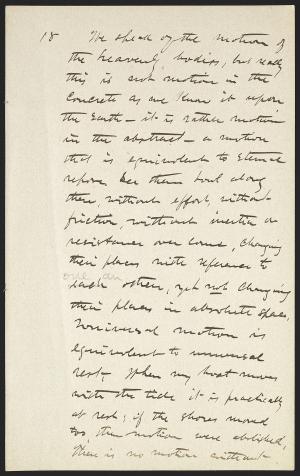 18 We speak of the motion of
the heavenly bodies, but really
this is not motion in the
Concrete as we know it upon
the Earth – it is rather motion
in the abstract – a motion
that is equivalent to Eternal
repose. See them soul along
there, without effort, without
friction, without inertia or
resistance over come, changing
their places with reference to
each other, yet not changing
their places in absolute space.
Universal motion is
equivalent to universal
rest. When my boat moves
with the tide it is practically
at rest; if the shores moved
too, then motion were abolished,
There is no motion without